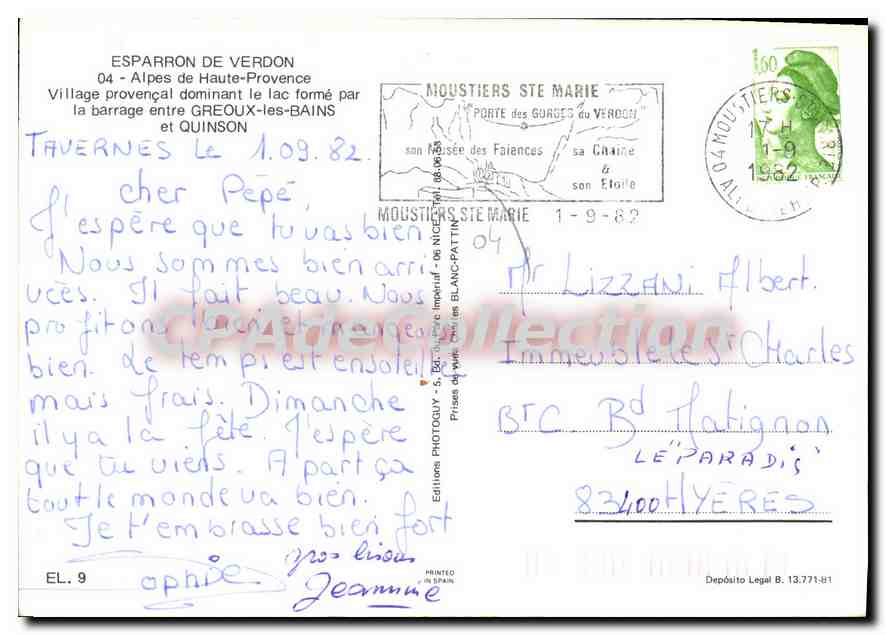 ESPARRON DE VERDON
04 - Alpes de Haute-Provence
Village provençal dominant le lac formé par
la barrage entre GREOUX-les-BAINS
et QUINSON
TAVERNES Le 1.09.82.
cher Pépé,
J'espère que tu vas bien
Nous sommes bien arri
vées. Il fait beau. Nous
profitons bien et mangeons
bien. Le temps est ensoleillé
mais frais. Dimanche
il y a la fête. J'espère
que tu viens. A part ça
tout le monde va bien.
Je t'embrasse bien fort
ophie
gros bisous
Jeannine
EL. 9
PRINTED
IN SPAIN
Editions PHOTOGUY - 5, Bd. du Parc Impérial - 06 NICE - Tél. 88-06-68
Prises de vues Charles BLANC-PATTIN
MOUSTIERS STE MARIE
"PORTE des GORGES du VERDON"
son Musée des Faïences
sa Chaine
&
son Etoile
MOUSTIERS STE MARIE 1-9-82
04
1,60
04 MOUSTIERS-STE
17 H
1-9
1982
Mr LIZZANI Albert.
Immeuble le St Charles
Bt C. Bd Matignon
LE "PARADIS"
83400 HYÈRES
Depósito Legal B. 13.771-81
CPAdeCollection